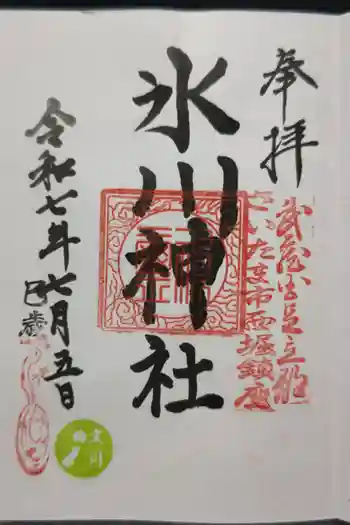 奉拝
武蔵国足立郡
さいたま市西堀鎮座
氷川神社
令和七年七月五日
巳歳